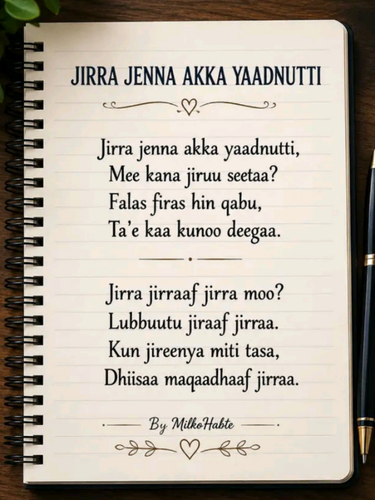 JIRRA JENNA AKKA YAADNUTTI
Jirra jenna akka yaadnutti,
Mee kana jiruu seetaa?
Falas firas hin qabu,
Ta'e kaa kunoo deegaa.
Jirra jirraaf jirra moo?
Lubbuutu jiraaf jirraa.
Kun jireenya miti tasa,
Dhiisaa maqaadhaaf jirraa.
By MilkoHabte